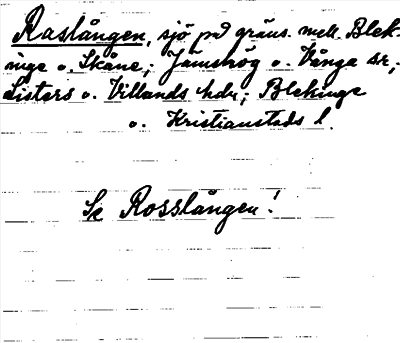 Raslången, sjö på gräns. mell. Blek-
inge o. Skåne; Jämshög o. Vånga sr,;
Listers o. Villands hdr; Blekinge
o. Kristianstads l.
Se Rosslången!